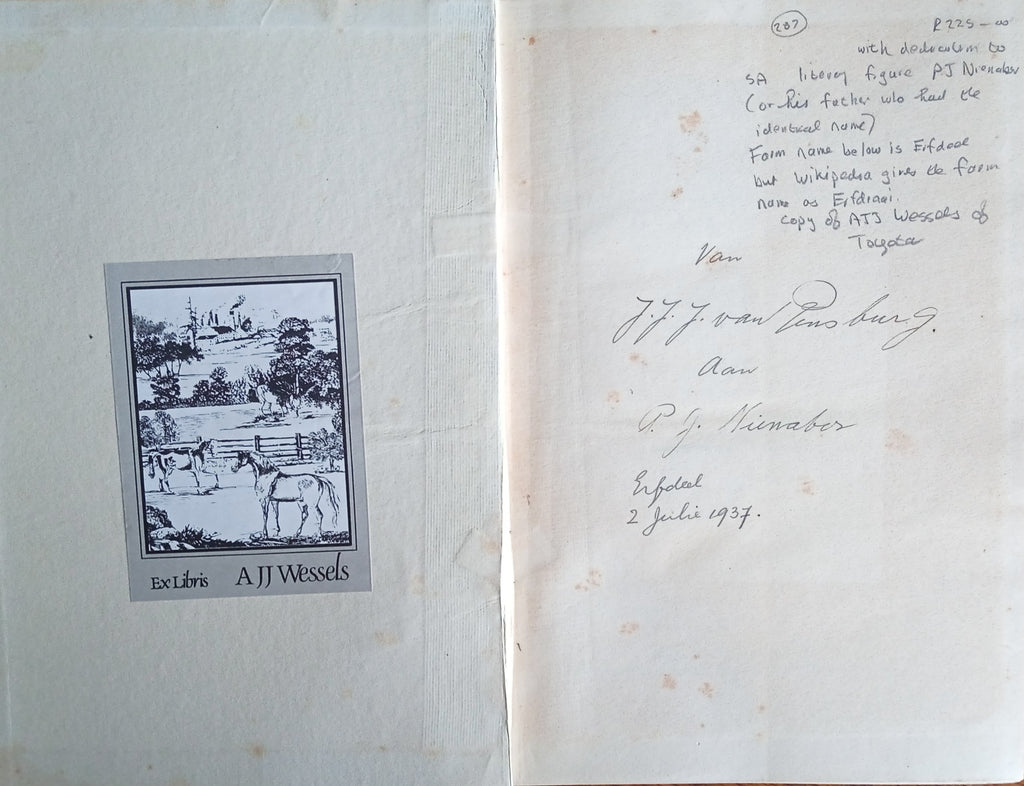 Ex Libris A JJ Wessels
287
R 225-00
with dedication to
SA literary figure PJ Nienaber
(or his father who had the
identical name)
Farm name below is Erfdeel
but Wikipedia gives the farm
name as Erfdraai.
copy of AJJ Wessels of
Toyota
Van
J.J.J. van Rensburg.
Aan
P. J. Nienaber
Erfdeel
2 Julie 1937.